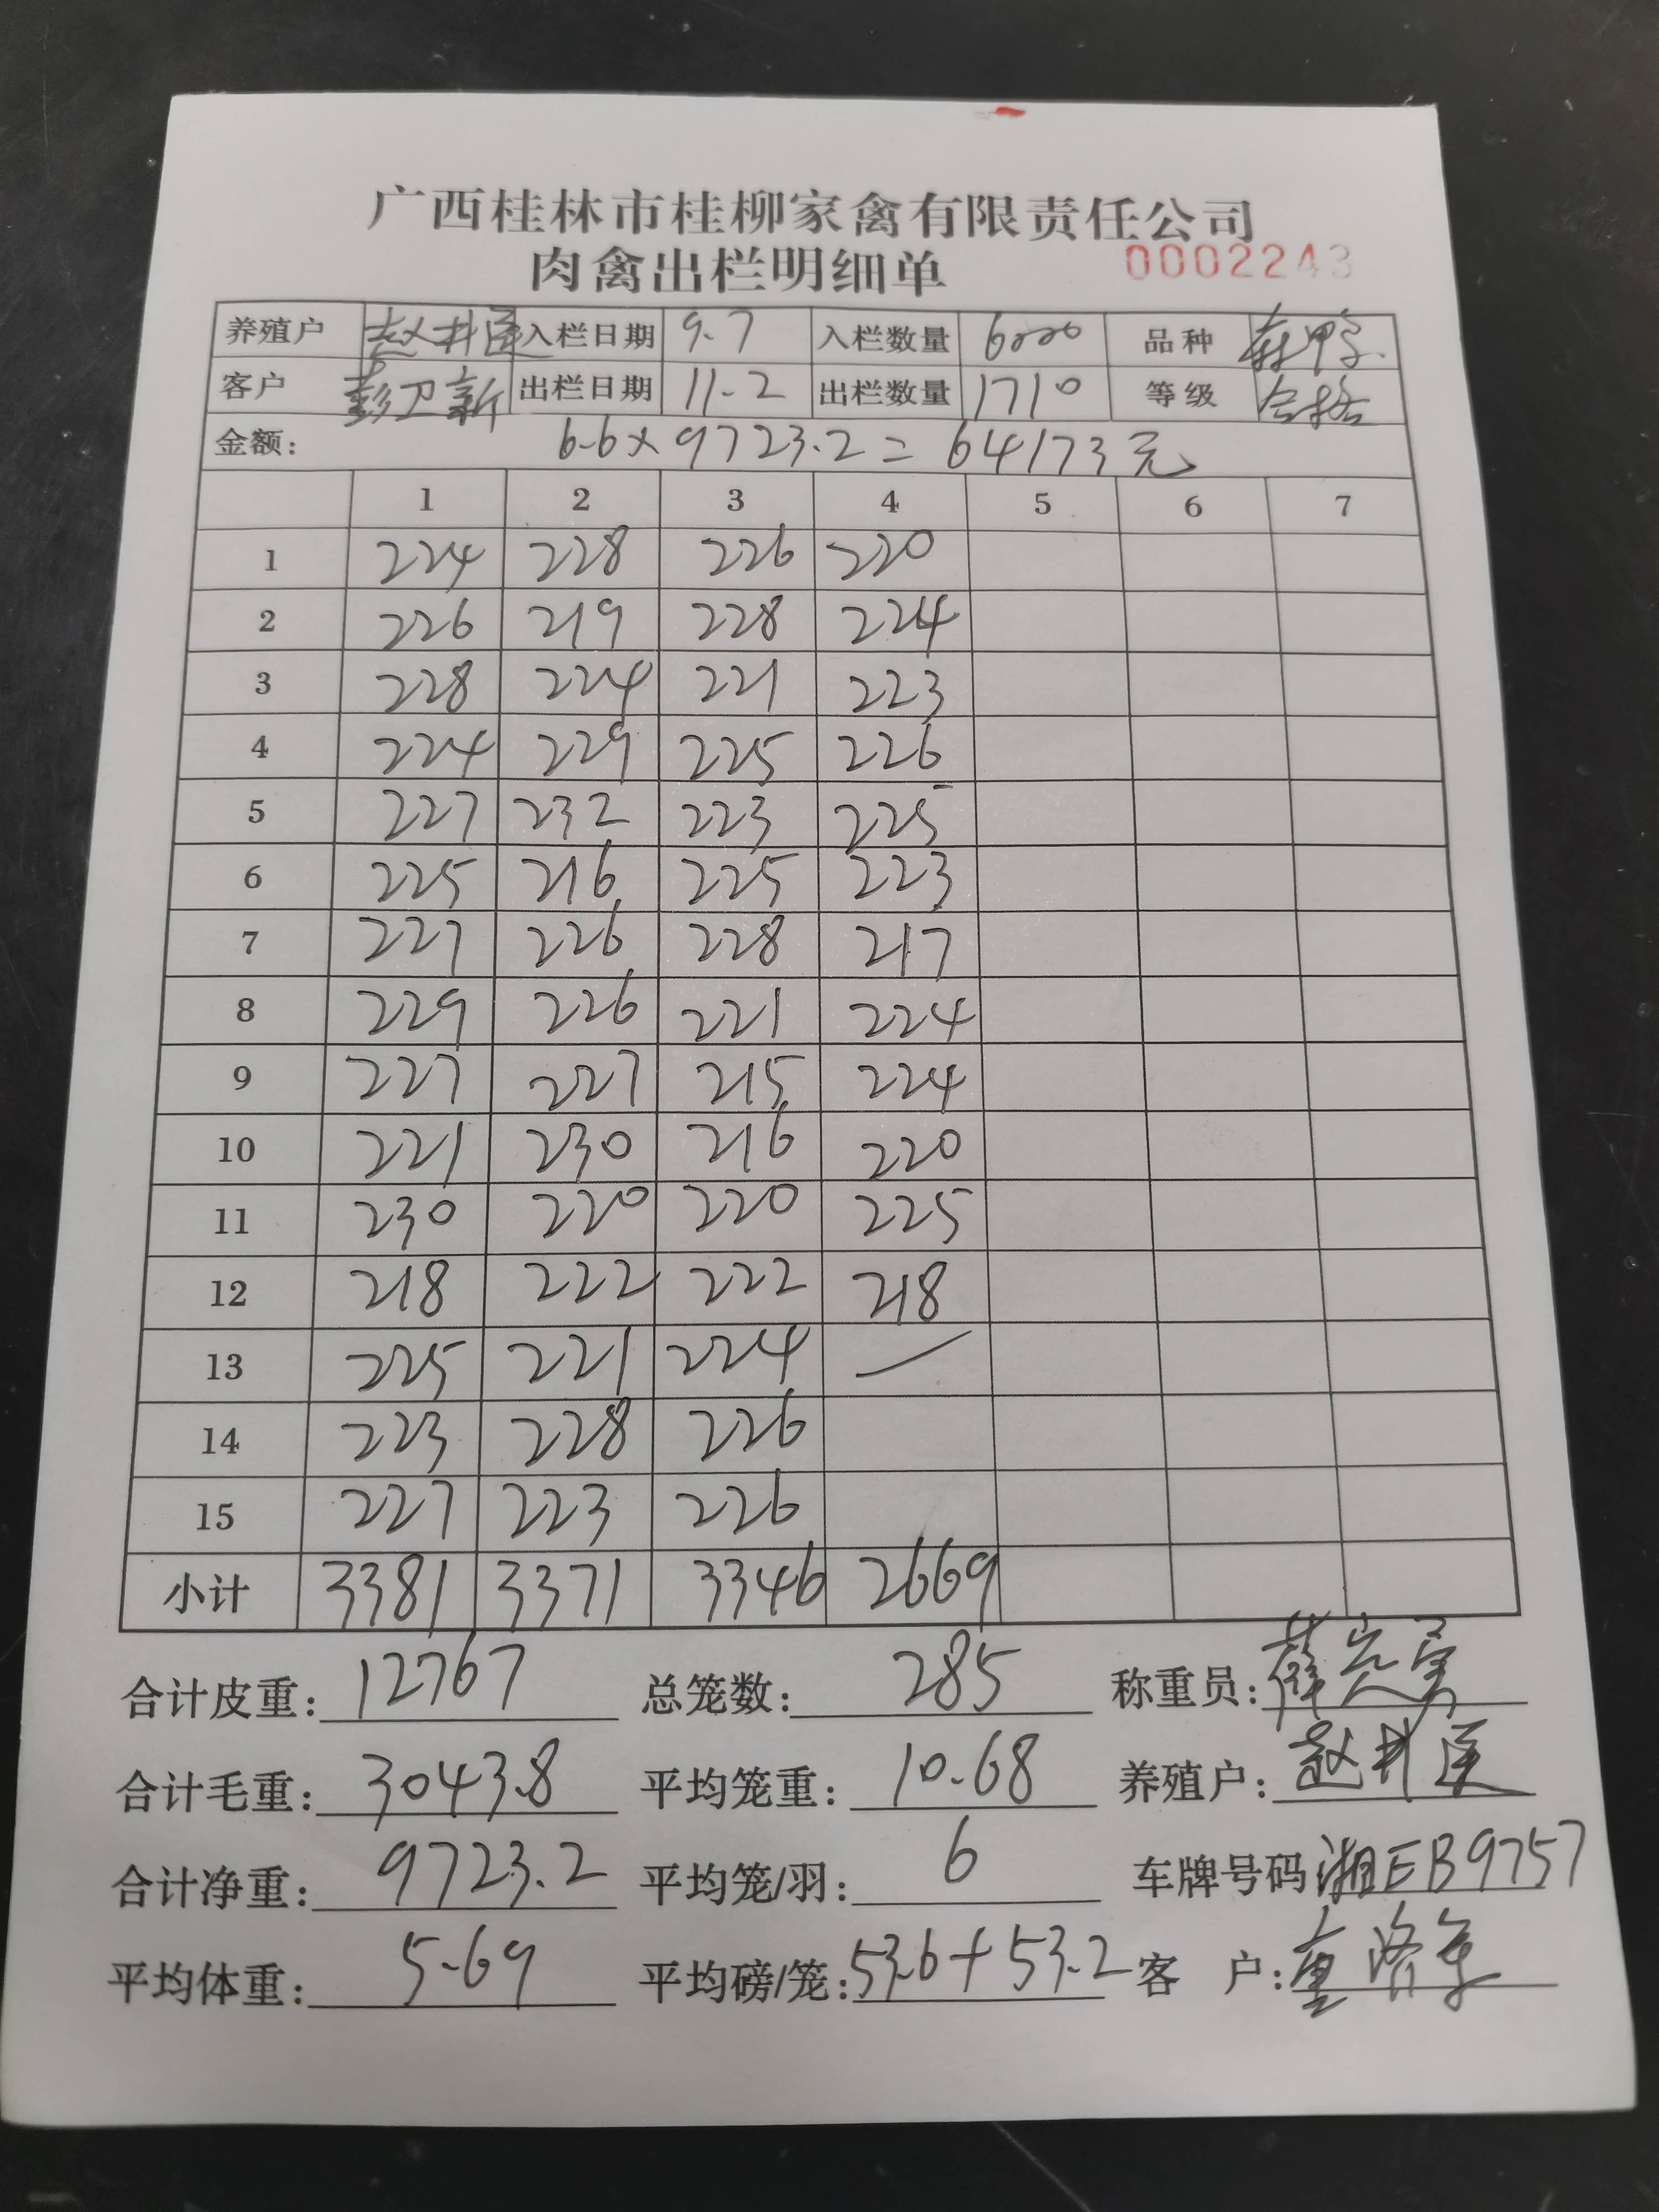 广西桂林市桂柳家禽有限责任公司
肉禽出栏明细单 0002243
养殖户 赵井 入栏日期 9.7 入栏数量 6000 品种 麻鸭
客户 彭卫新 出栏日期 11.2 出栏数量 1710 等级 合格
金额: 6.6×9723.2=64173元
1 2 3 4 5 6 7
1 224 228 226 220
2 226 219 228 224
3 228 224 221 223
4 224 229 225 226
5 227 232 223 225
6 225 216 225 223
7 227 226 228 217
8 229 226 221 224
9 227 227 215 224
10 221 230 216 220
11 230 220 220 225
12 218 222 222 218
13 225 221 224 —
14 223 228 226
15 227 223 226
小计 3381 3371 3346 2669
合计皮重: 12767 总笼数: 285 称重员: 薛
合计毛重: 3043.8 平均笼重: 10.68 养殖户: 赵井
合计净重: 9723.2 平均笼/羽: 6 车牌号码 湘EB9757
平均体重: 5.69 平均磅/笼: 53.6+53.2 客 户: